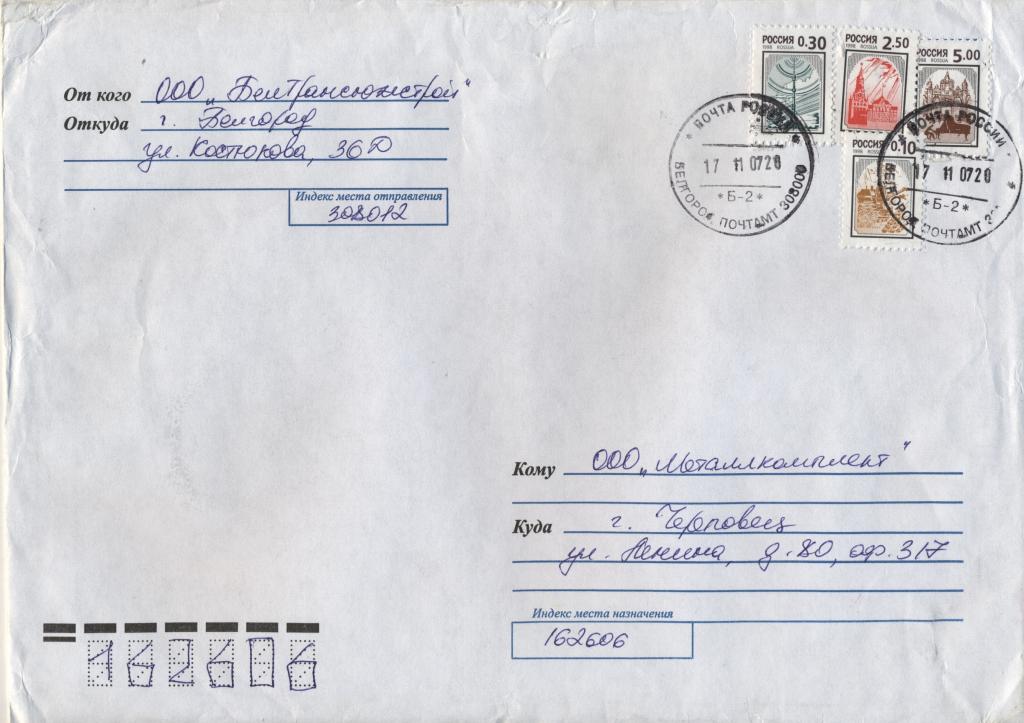 От кого ООО „Белтрансюжстрой"
Откуда г. Белгород
ул. Костюкова, 36 D
Индекс места отправления
308012
РОССИЯ 0.30
1998 ROSSIJA
РОССИЯ 2.50
1998 ROSSIJA
РОССИЯ 5.00
1998 ROSSIJA
0.10
1998 ROSSIJA
* ПОЧТА РОССИИ *
17 11 0720
* Б-2 *
БЕЛГОРОД ПОЧТАМТ 308000
* ПОЧТА РОССИИ *
17 11 0720
* Б-2 *
БЕЛГОРОД ПОЧТАМТ
Кому ООО „Металлкомплект"
Куда г. Череповец
ул. Ленина, д. 80, оф. 317
Индекс места назначения
162606
162606